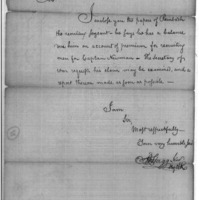 Sir
I enclose you the papers of
the recruiting sergeant — he says he has a balance
due him on account of premium for recruiting
men for Captain Newman — The Secretary of
War requests his claim may be examined, and a
report thereon made as soon as possible. —
I am
Sir,
Most respectfully
Your very humble Svt